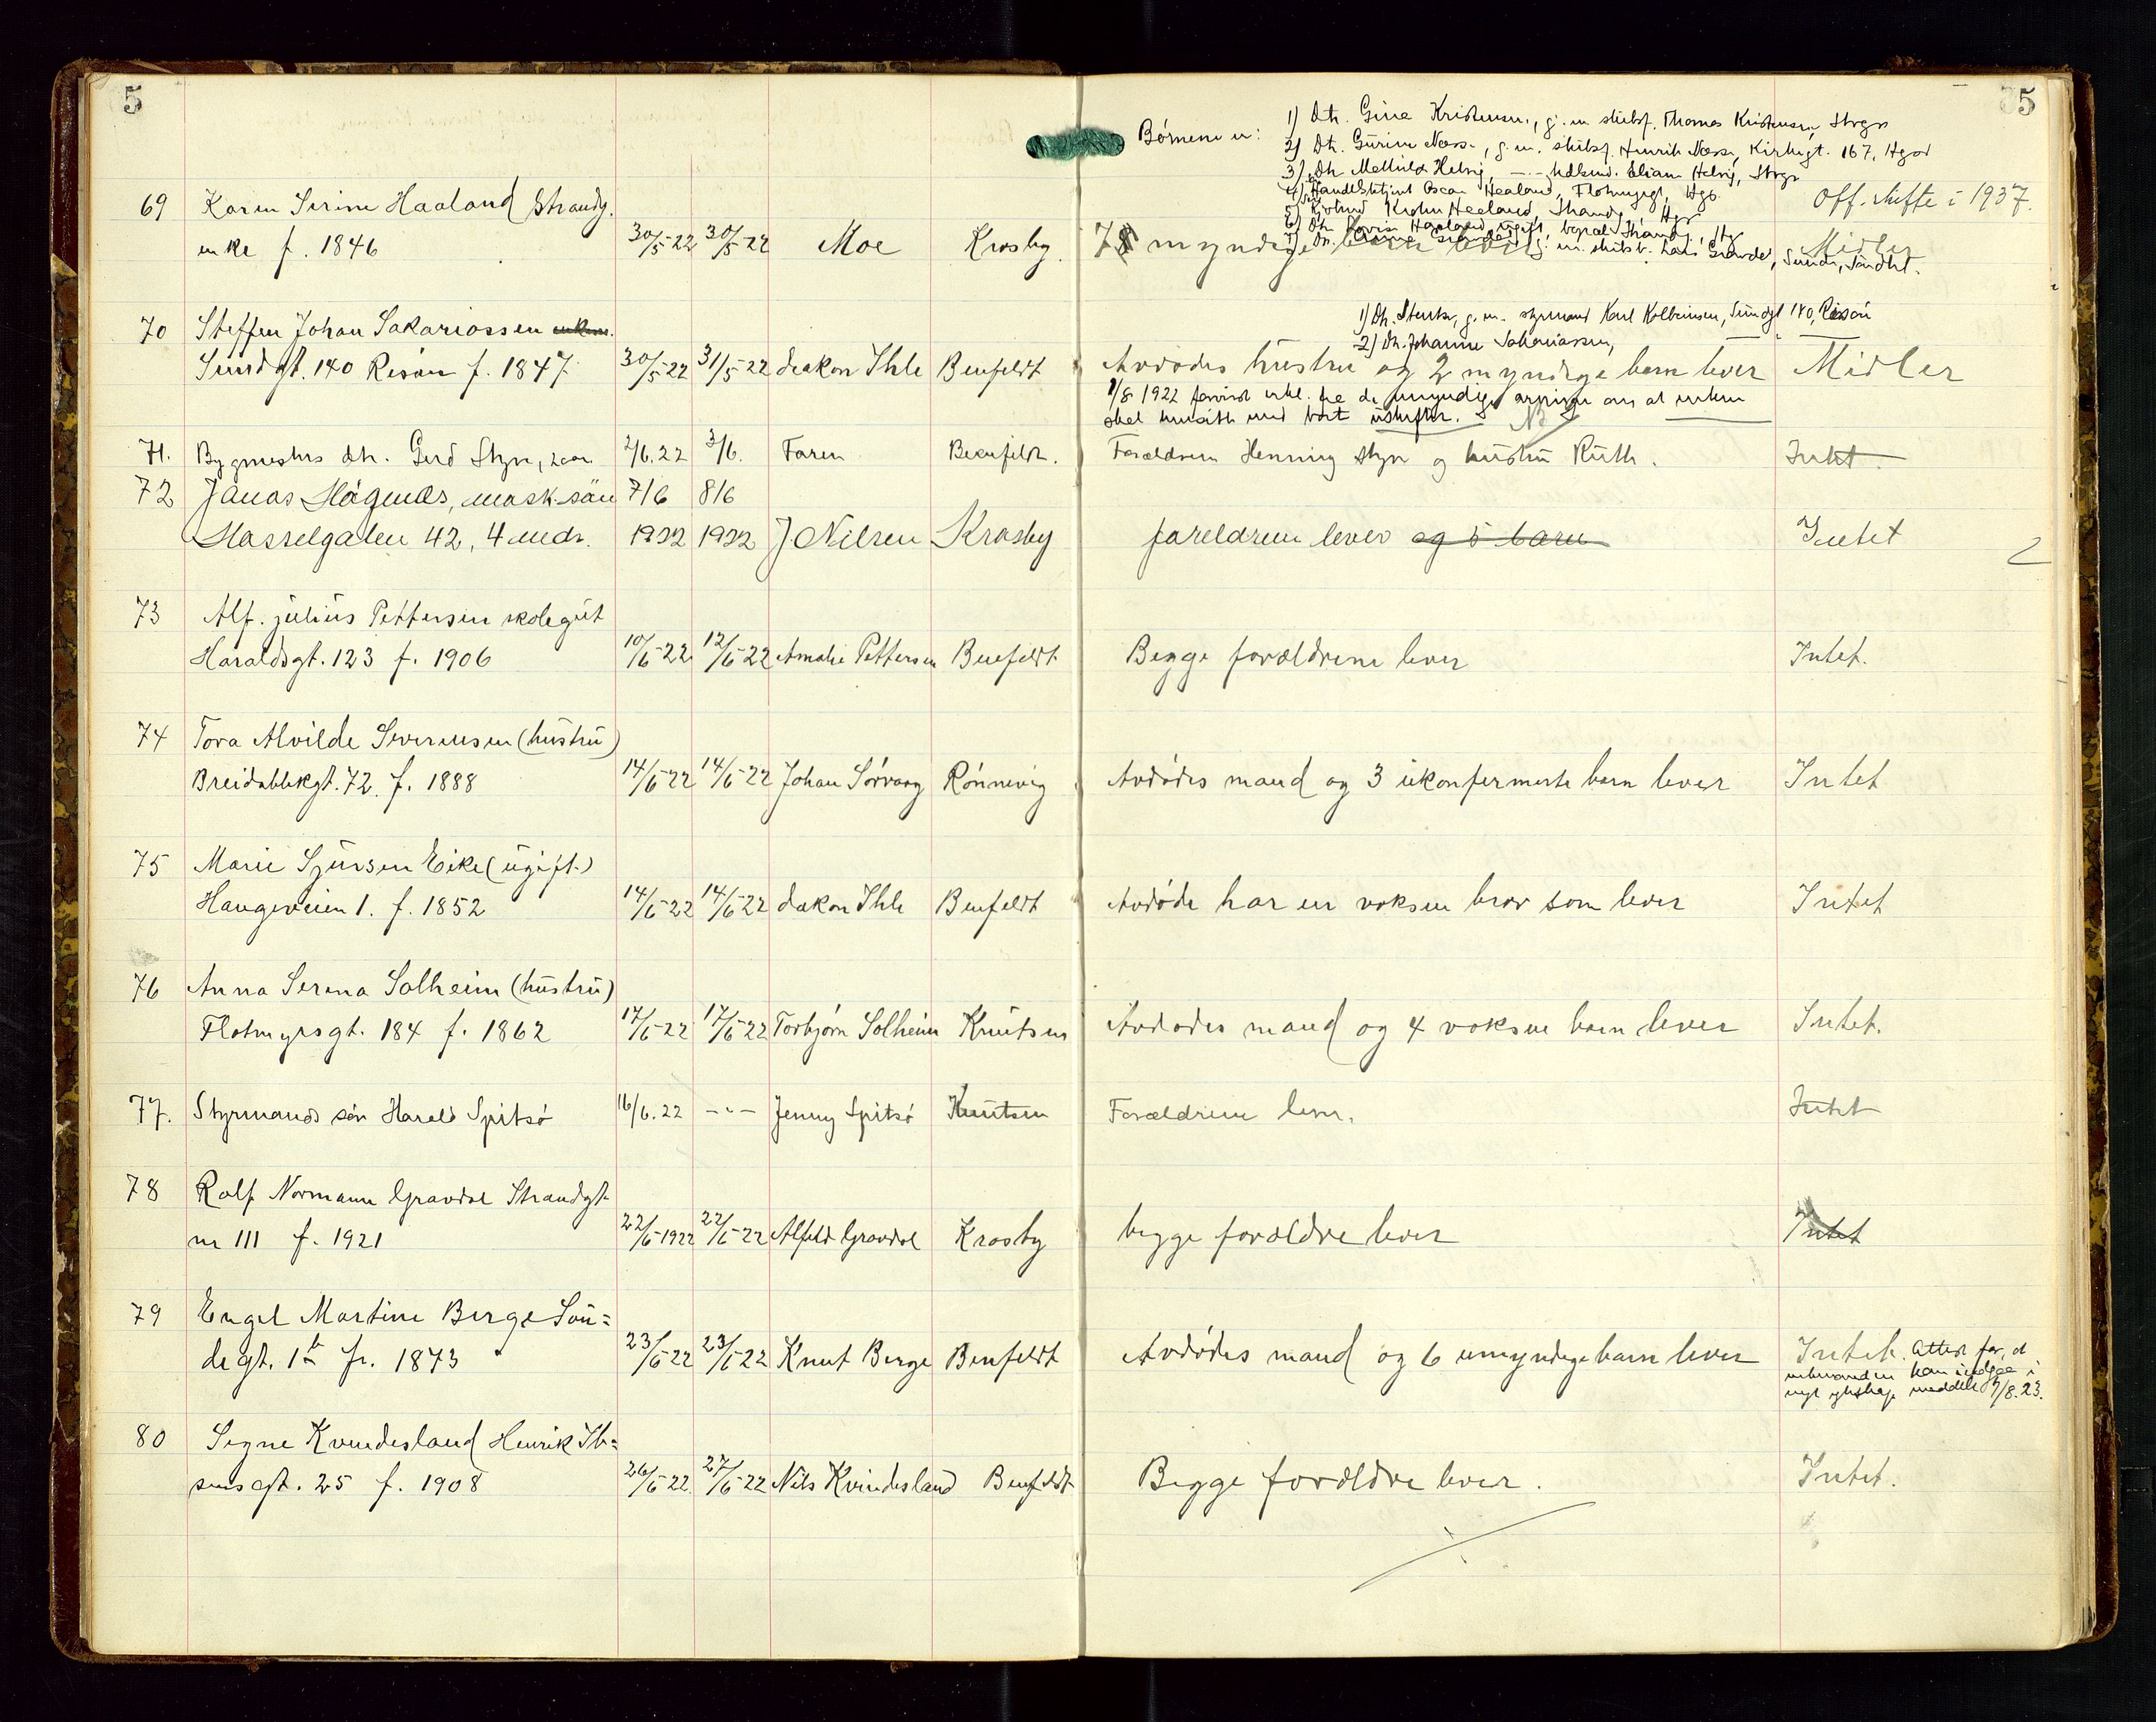 5
5
Børnene er:
1) Dtr. Gina Kristensen, g.m. skibsf. Thomas Kristensen, Strgn
2) Dtr. Gurine Næss, g.m. skibsf. Henrik Næss, Kirkegt. 167, Hgsd
3) Dtr. Mathilde Helvig, —„— Elias Helvig, Strgn
4) Handelsbetjent Oscar Haaland, Flotmyrgt, Hgs.
5) Krohn Haaland, Strandg, Hgs
6) Dtr. Haaland, ugift, Strandg, Hg
7) Dtr. g.m. skibsf. Lars Grønde, Sunde, Søndhl.
69 Karen Serine Haaland Strandg.
enke f. 1846 30/5-22 30/5-22 Moe Krosby 7 myndige børn lever Midler
Off. skifte i 1937.
70 Steffen Johan Sakariassen enkem.
Sundgt. 140 Risøen f. 1847. 30/5-22 31/5-22 diakon Ihle Benfeldt Avdødes hustru og 2 myndige barn lever Midler
1) Dtr. g.m. styrmand Karl Kolbeinsen, Sundgt 140, Risøen
2) Dtr. Johanne Sakariassen,
1/8 1922 fra de myndige arvinger om at enken
skal hensitte med boet uskiftet. NB
71. Bygmesters dtr. Gerd Styn, 2 aar 2/6.22 3/6. Faren Benfeldt. Forældrene Henning Styn og hustru Ruth. Intet
72 Jonas Høgnes, mask. søn 7/6 8/6
Hasselgaten 42, 4 mdr. 1922 1922 J Nilsen Krosby foreldrene lever og 5 barn Intet
73 Alf. Julius Pettersen skolegut
Haraldsgt. 123 f. 1906 10/6-22 12/6-22 Amalie Pettersen Benfeldt Begge forældrene lever Intet.
74 Tora Alvilde Severinsen (hustru)
Breidablikgt. 72 f. 1888 14/6-22 14/6-22 Johan Sørvaag Rønnevig Avdødes mand og 3 ukonfermerte barn lever Intet
75 Marie Sjursen Eike (ugift.)
Haugeveien 1. f. 1852 14/6-22 14/6-22 diakon Ihle Benfeldt Avdøde har en voksen bror som lever Intet
76 Anna Serina Solheim (hustru)
Flotmyrsgt. 184 f. 1862 17/6-22 17/6-22 Torbjørn Solheim Knutsen Avdødes mand og 4 voksne barn lever Intet.
77. Styrmands søn Harald Spitsø 16/6.22 -„- Jenny Spitsø Knutsen Forældrene lever. Intet
78 Rolf Normann Gravdal Strandgt.
nr 111 f. 1921 22/6-1922 22/6-22 Alfild Gravdal Krosby begge forældre lever Intet
79 Engel Martine Berge Sun=
degt. 1b f. 1873 23/6-22 23/6-22 Knut Berge Benfeldt Avdødes mand og 6 umyndige barn lever Intet. Attest for, at
enkemanden kan indgaa i
nyt egteskap meddelt 9/8.23.
80 Signe Kvindesland Henrik Ib=
sens gt. 25 f. 1908 26/6-22 27/6-22 Nils Kvindesland Benfeldt Begge forældre lever. Intet.